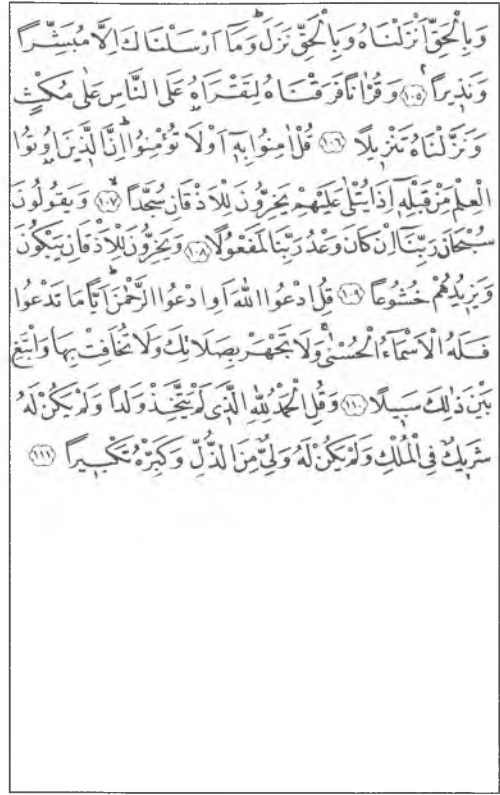 وَبِالْحَقِّ اَنْزَلْنَاهُ وَبِالْحَقِّ نَزَلَۜ وَمَٓا اَرْسَلْنَاكَ اِلَّا مُبَشِّراً
وَنَذ۪يراًۢ ﴿١٠٥﴾ وَقُرْاٰناً فَرَقْنَاهُ لِتَقْرَاَهُ عَلَى النَّاسِ عَلٰى مُكْثٍ
وَنَزَّلْنَاهُ تَنْز۪يلاً ﴿١٠٦﴾ قُلْ اٰمِنُوا بِه۪ٓ اَوْ لَا تُؤْمِنُواۜ اِنَّ الَّذ۪ينَ اُو۫تُوا
الْعِلْمَ مِنْ قَبْلِه۪ٓ اِذَا يُتْلٰى عَلَيْهِمْ يَخِرُّونَ لِلْاَذْقَانِ سُجَّداًۙ ﴿١٠٧﴾ وَيَقُولُونَ
سُبْحَانَ رَبِّنَٓا اِنْ كَانَ وَعْدُ رَبِّنَا لَمَفْعُولاً ﴿١٠٨﴾ وَيَخِرُّونَ لِلْاَذْقَانِ يَبْكُونَ
وَيَز۪يدُهُمْ خُشُوعاً ﴿١٠٩﴾ قُلِ ادْعُوا اللّٰهَ اَوِ ادْعُوا الرَّحْمٰنَۜ اَياًّ مَا تَدْعُوا
فَلَهُ الْاَسْمَٓاءُ الْحُسْنٰىۚ وَلَا تَجْهَرْ بِصَلَاتِكَ وَلَا تُخَافِتْ بِهَا وَابْتَغِ
بَيْنَ ذٰلِكَ سَب۪يلاً ﴿١١٠﴾ وَقُلِ الْحَمْدُ لِلّٰهِ الَّذ۪ي لَمْ يَتَّخِذْ وَلَداً وَلَمْ يَكُنْ لَهُ
شَر۪يكٌ فِي الْمُلْكِ وَلَمْ يَكُنْ لَهُ وَلِيٌّ مِنَ الذُّلِّ وَكَبِّرْهُ تَكْب۪يراً ﴿١١١﴾